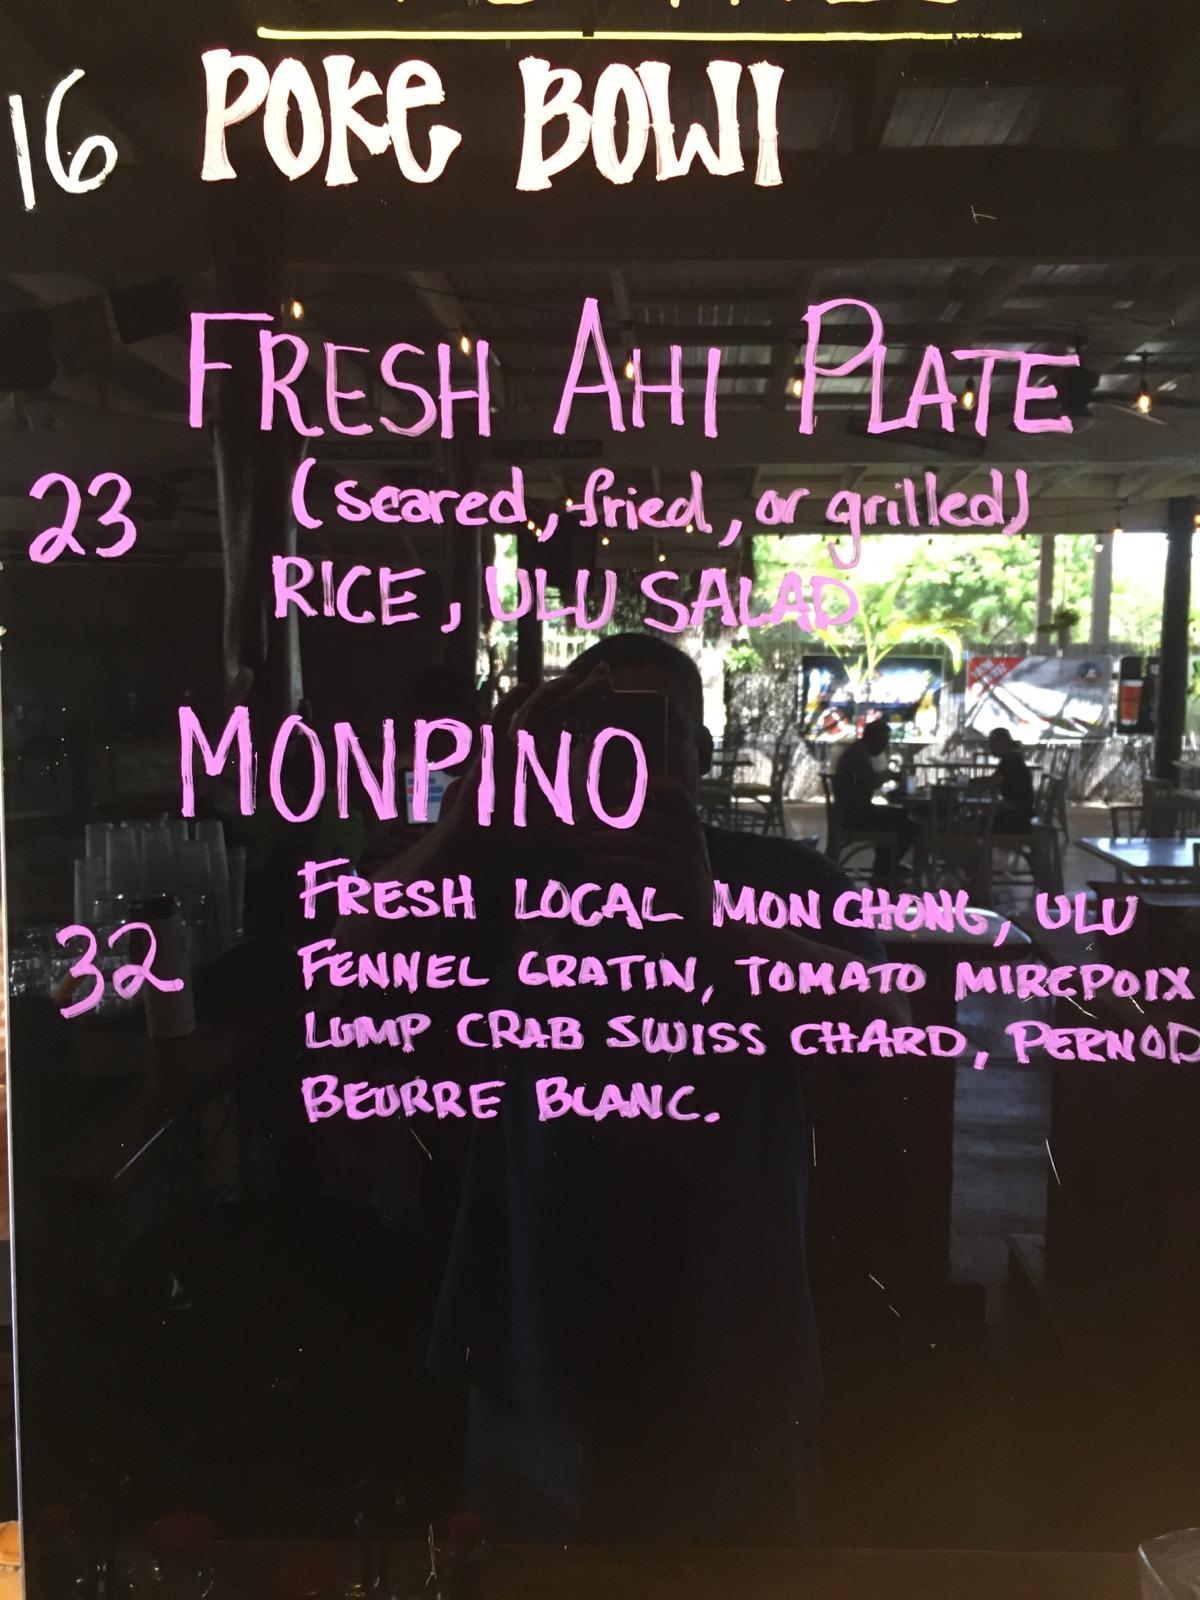 16 POKE BOWl
FRESH AHI PLATE
23 (seared, fried, or grilled)
RICE, ULU SALAD
MONPINO
FRESH LOCAL MONCHONG, ULU
32 FENNEL GRATIN, TOMATO MIREPOIX
LUMP CRAB SWISS CHARD, PERNOD
BEURRE BLANC.